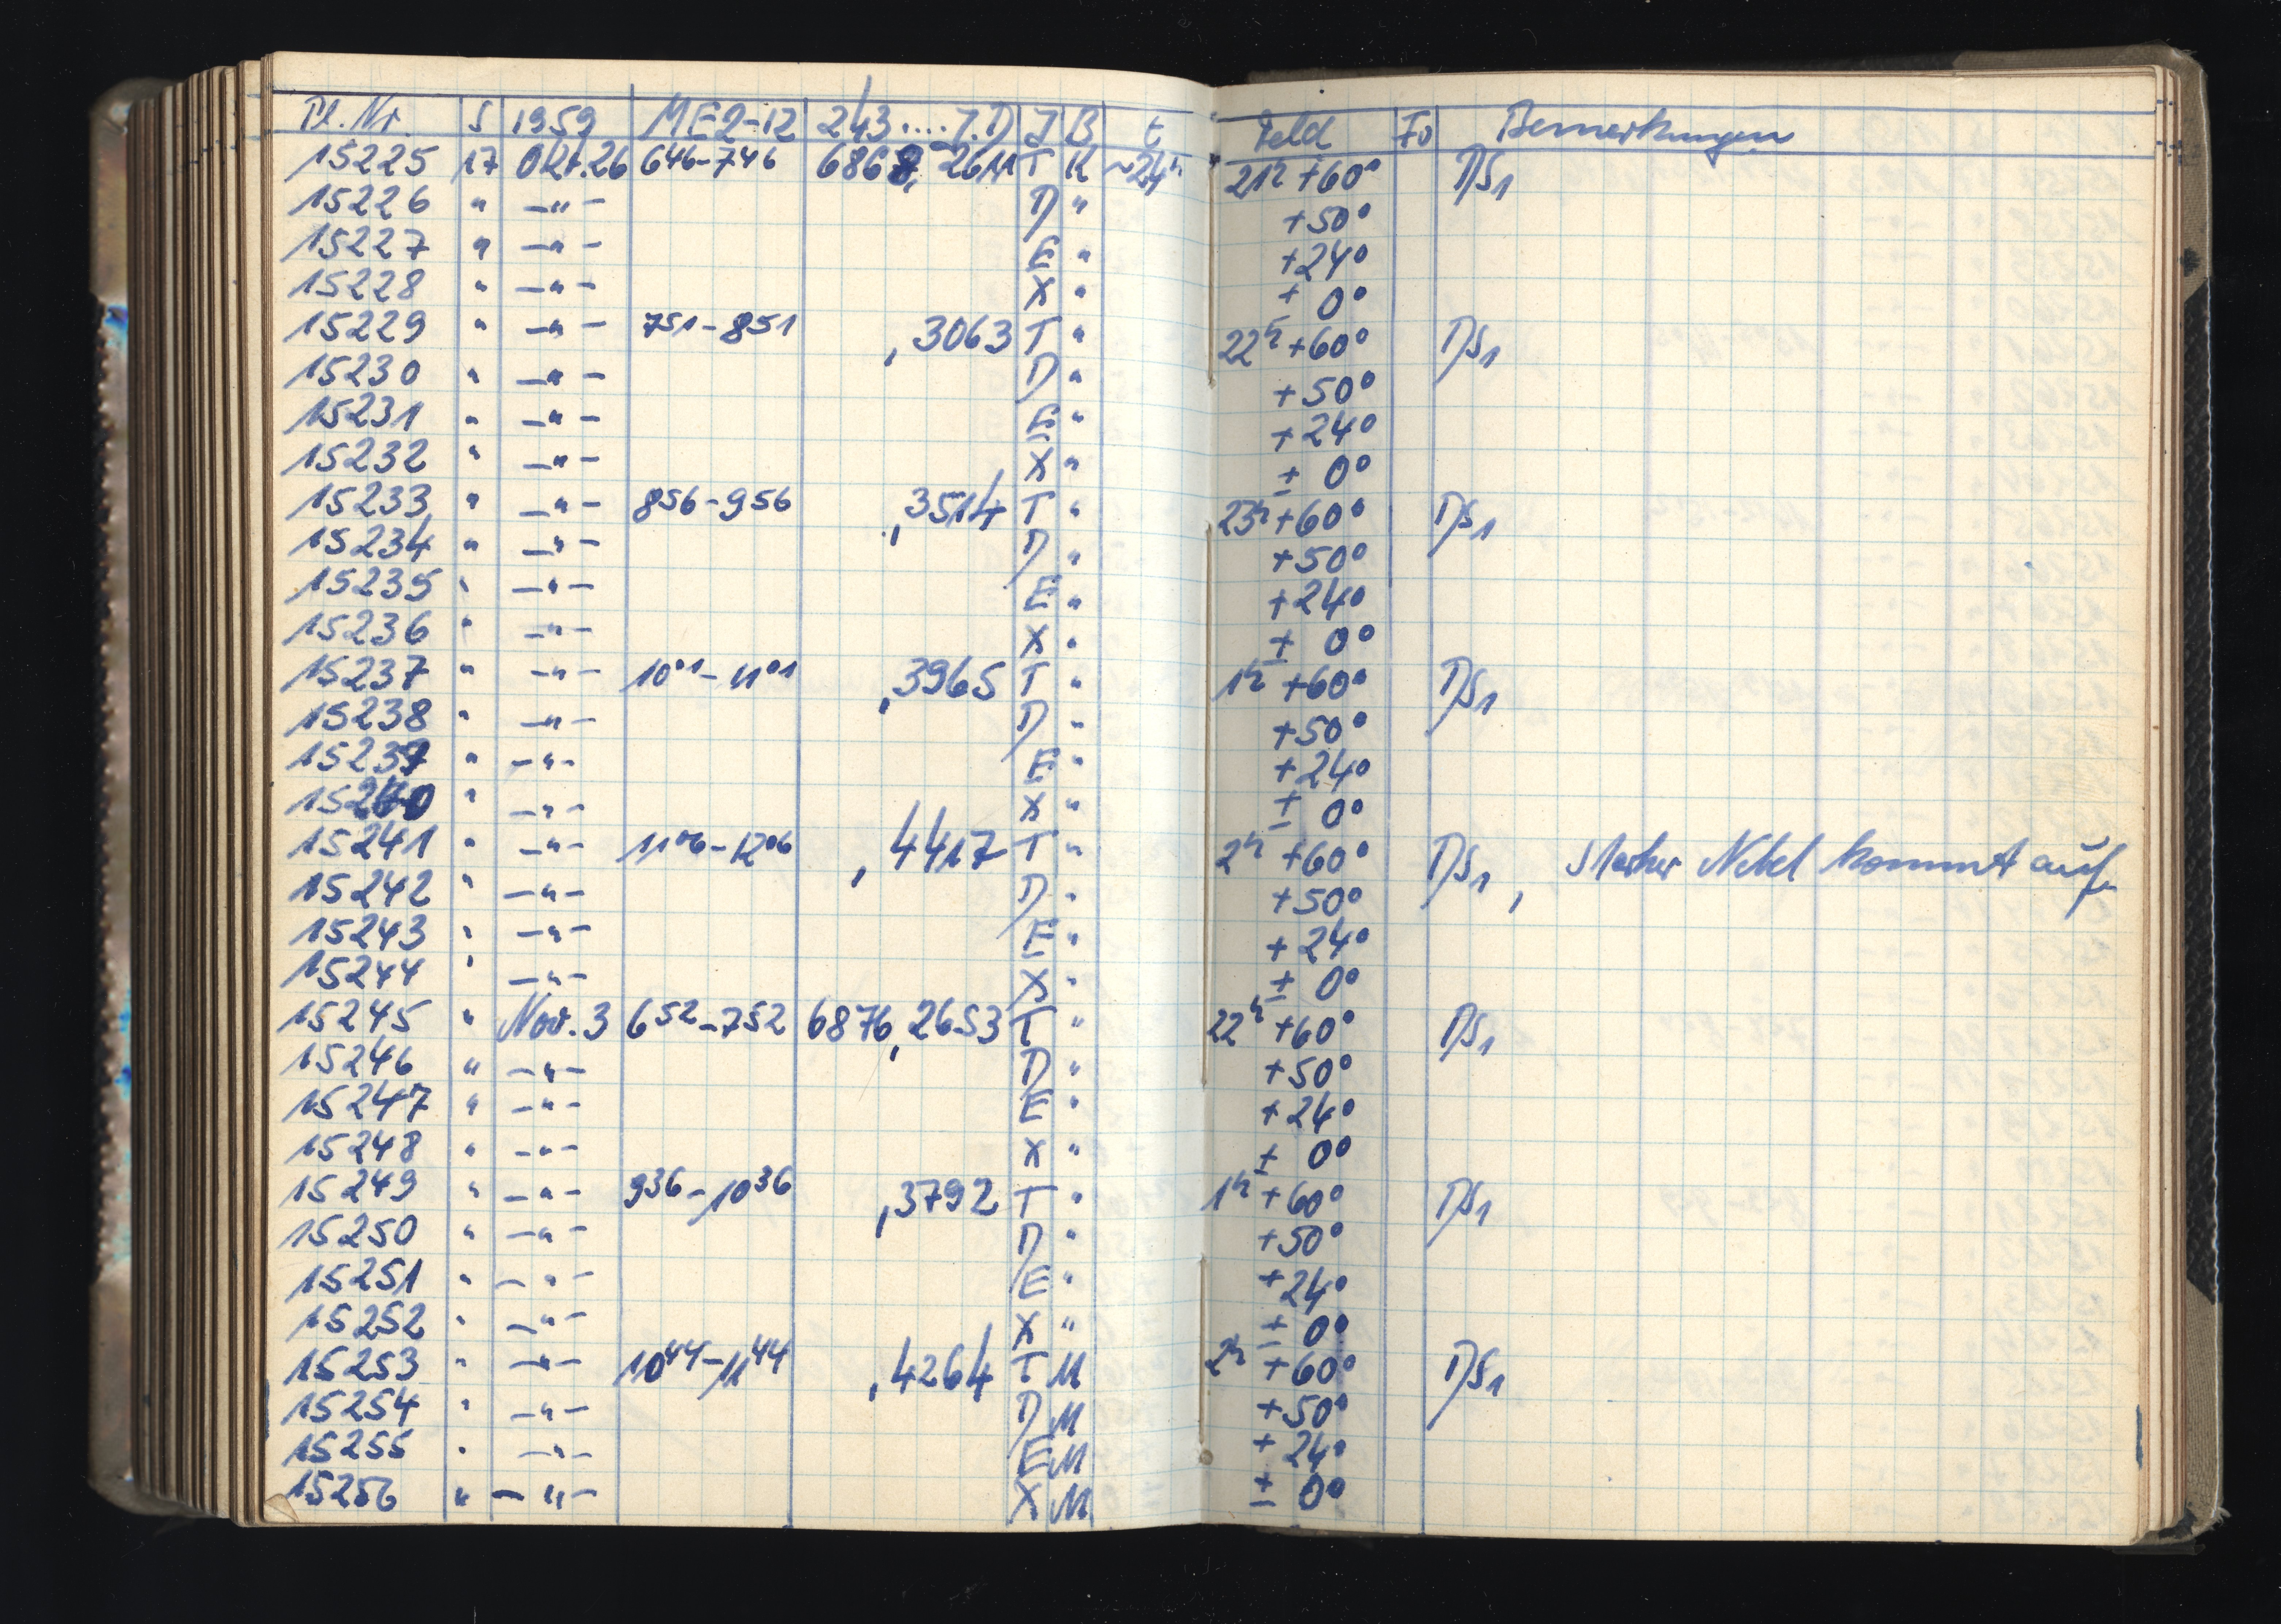 Pl. Nr. S 1959 MEZ-12 243....J.D J B t Feld Fo Bemerkungen
15225 17 Okt. 26 6⁴⁶-7⁴⁶ 6868, 2611 T K ~24ʰ 21ʰ +60° DS₁
15226 " -"- D " +50°
15227 " -"- E " +24°
15228 " -"- X " ± 0°
15229 " -"- 7⁵¹-8⁵¹ ,3063 T " 22ʰ +60° DS₁
15230 " -"- D " +50°
15231 " -"- E " +24°
15232 " -"- X " ± 0°
15233 " -"- 8⁵⁶-9⁵⁶ ,3514 T " 23ʰ +60° DS₁
15234 " -"- D " +50°
15235 " -"- E " +24°
15236 " -"- X " ± 0°
15237 " -"- 10⁰¹-11⁰¹ ,3965 T " 1ʰ +60° DS₁
15238 " -"- D " +50°
15239 " -"- E " +24°
15240 " -"- X " ± 0°
15241 " -"- 11⁰⁶-12⁰⁶ ,4417 T " 2ʰ +60° DS₁, Starker Nebel kommt auf.
15242 " -"- D " +50°
15243 " -"- E " +24°
15244 " -"- X " ± 0°
15245 " Nov. 3 6⁵²-7⁵² 6876,2653 T " 22ʰ +60° DS₁
15246 " -"- D " +50°
15247 " -"- E " +24°
15248 " -"- X " ± 0°
15249 " -"- 9³⁶-10³⁶ ,3792 T " 1ʰ +60° DS₁
15250 " -"- D " +50°
15251 " -"- E " +24°
15252 " -"- X " ± 0°
15253 " -"- 10⁴⁴-11⁴⁴ ,4264 T M 2ʰ +60° DS₁
15254 " -"- D M +50°
15255 " -"- E M +24°
15256 " -"- X M ± 0°